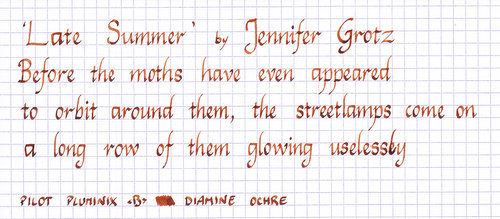 'Late Summer' by Jennifer Grotz
Before the moths have even appeared
to orbit around them, the streetlamps come on
a long row of them glowing uselessly
PILOT PLUMINIX <B> DIAMINE OCHRE